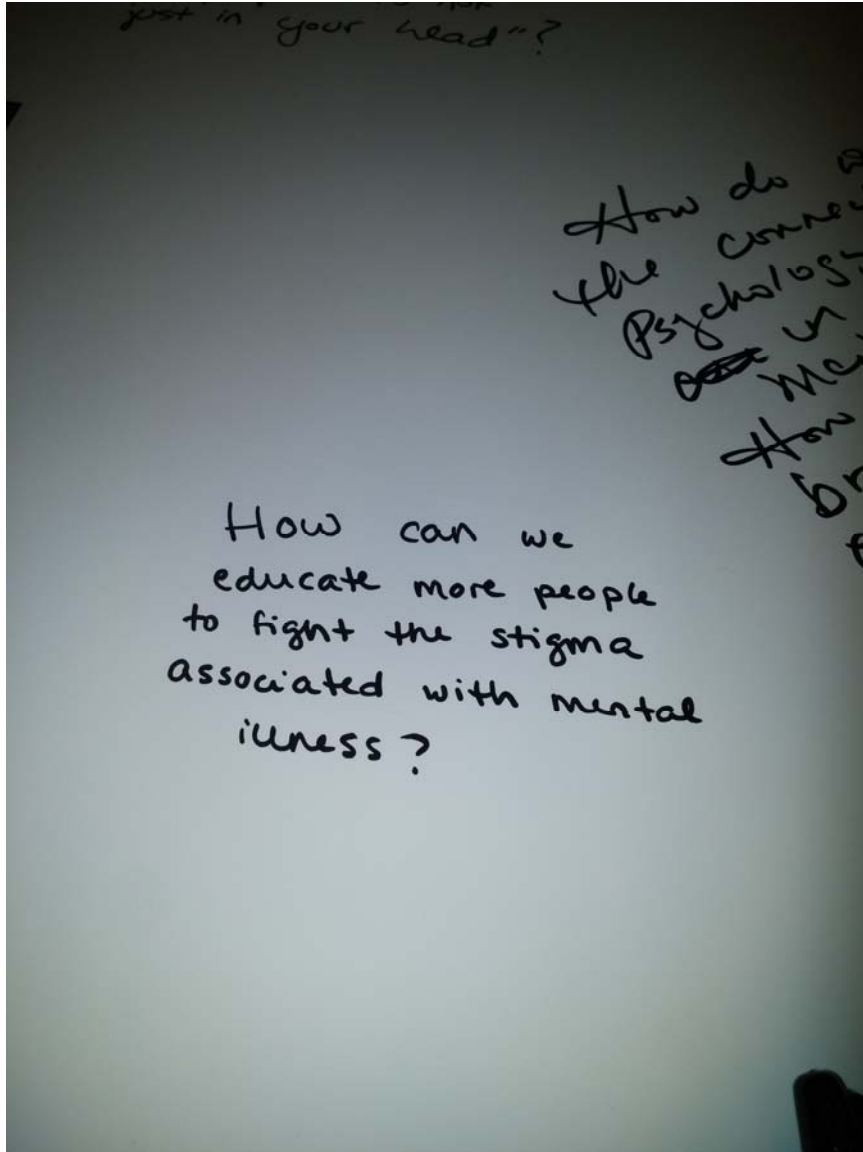 just in your head"?
How do
the
Psychology
in
How
How can we
educate more people
to fight the stigma
associated with mental
illness?